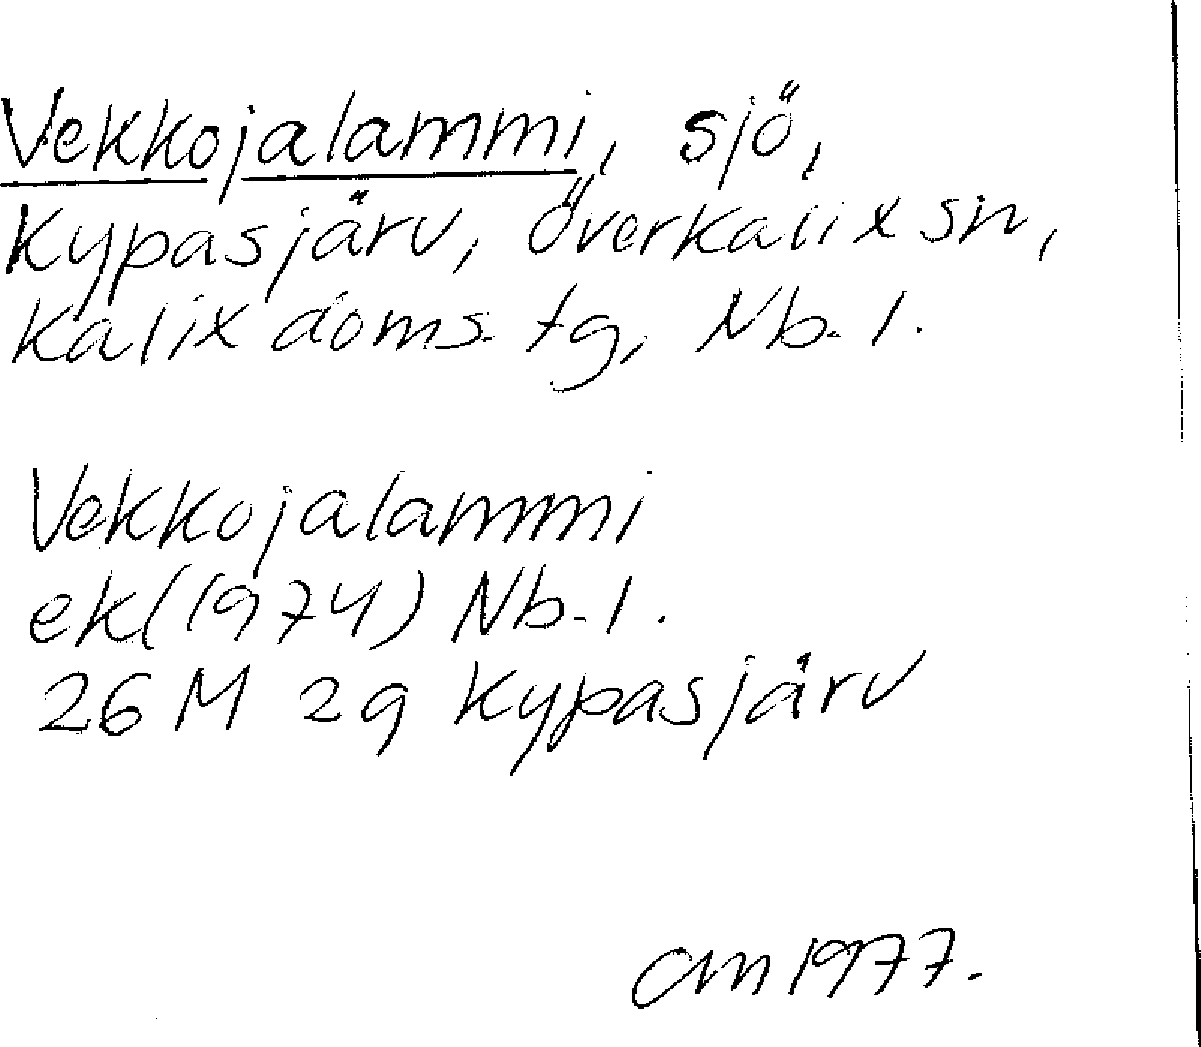 Vekkojalammi, sjö,
Kypasjärv, Överkalix sn,
Kalix doms. tg, Nb. l.
Vekkojalammi
ek (1974) Nb. l.
26 M 2g Kypasjärv
CM 1977.